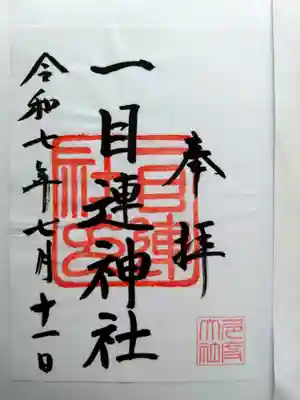 奉拝
一目連神社
令和七年七月十一日
多度大社